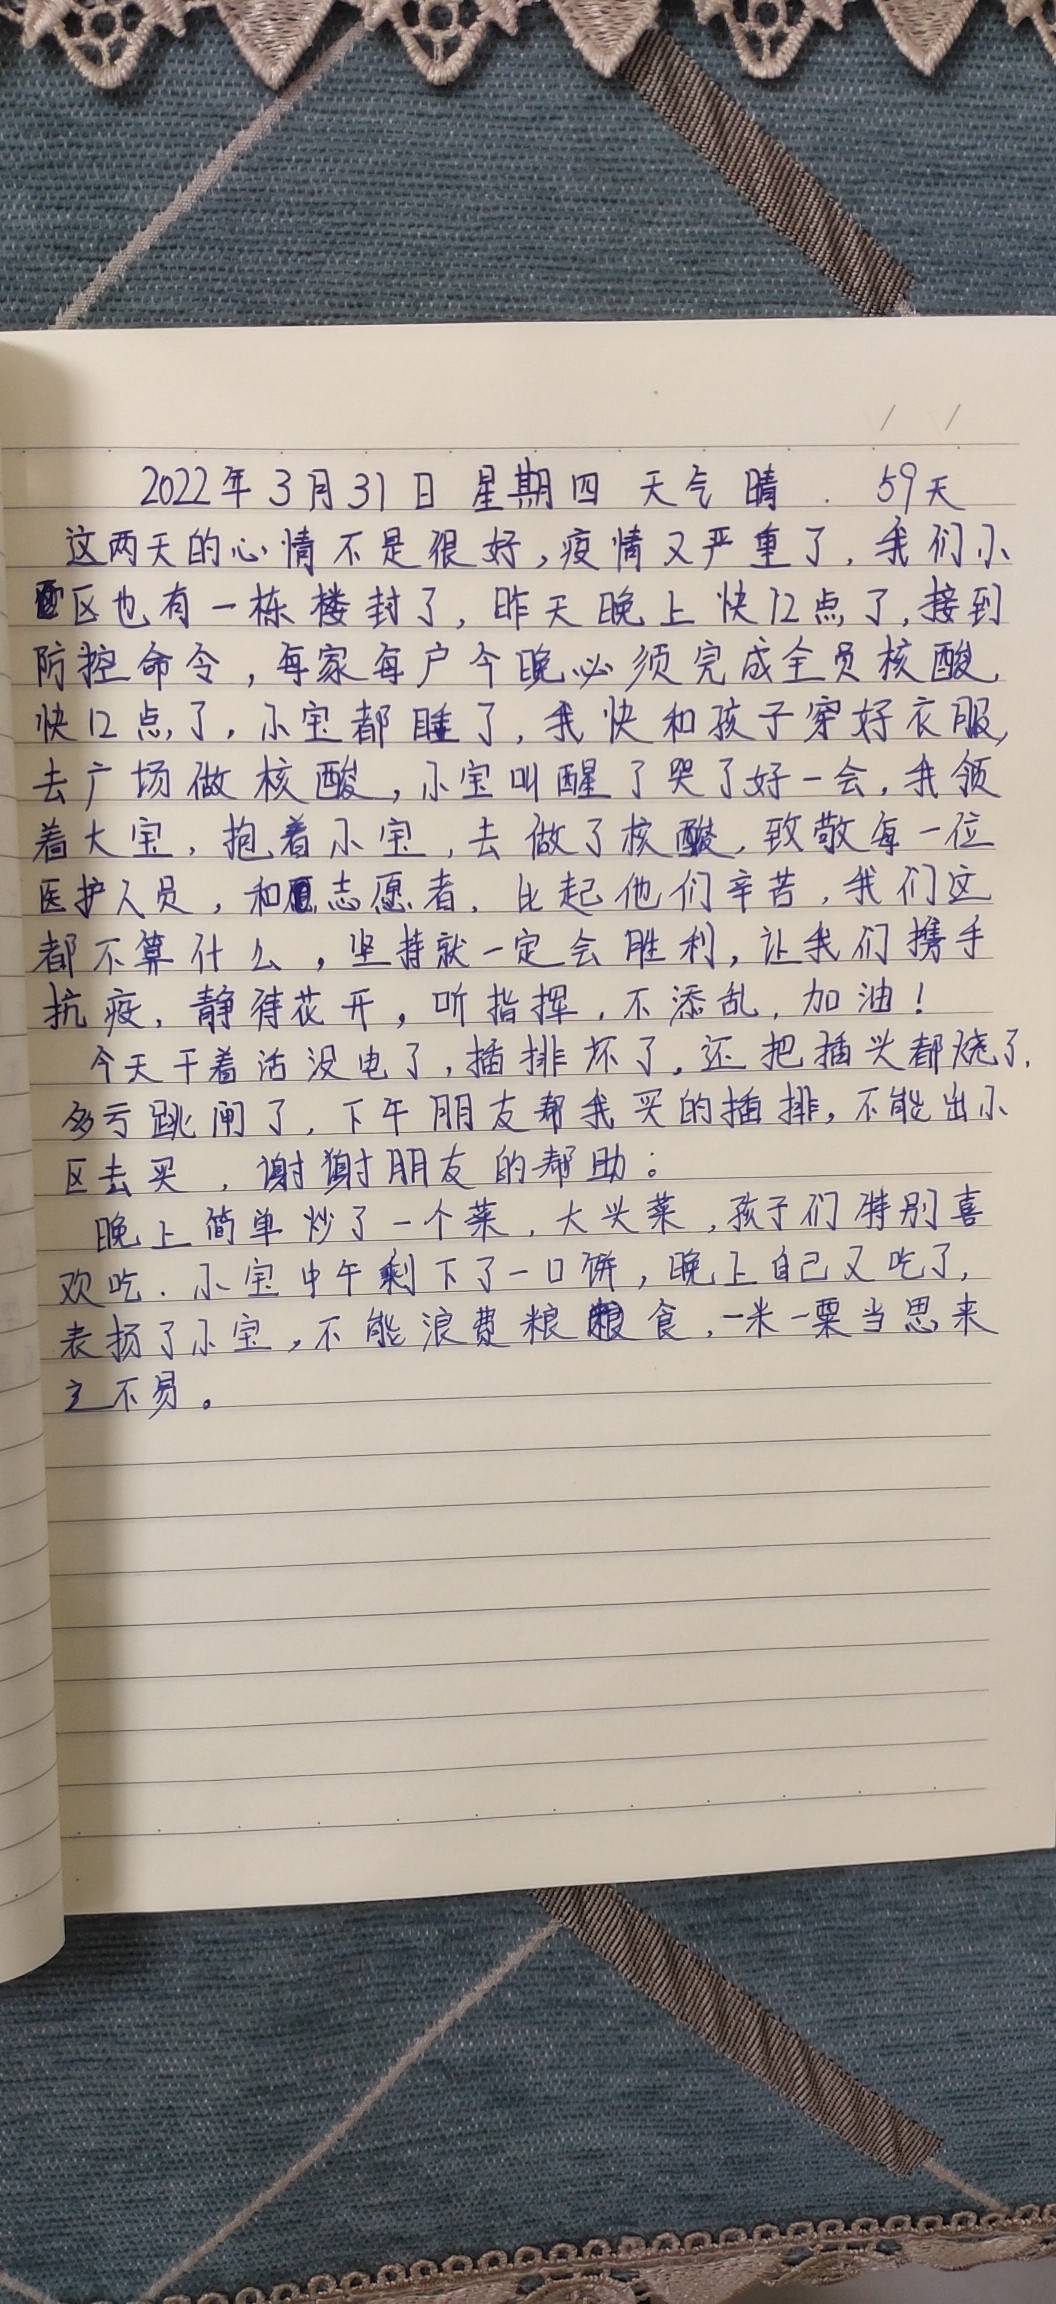 2022年3月31日 星期四 天气晴. 59天
这两天的心情不是很好,疫情又严重了,我们小
区也有一栋楼封了,昨天晚上快12点了,接到
防控命令,每家每户今晚必须完成全员核酸,
快12点了,小宝都睡了,我快和孩子穿好衣服,
去广场做核酸,小宝叫醒了哭了好一会,我领
着大宝,抱着小宝,去做了核酸,致敬每一位
医护人员,和志愿者,比起他们辛苦,我们这
都不算什么,坚持就一定会胜利,让我们携手
抗疫,静待花开,听指挥,不添乱,加油!
今天干着活没电了,插排坏了,还把插头都烧了,
多亏跳闸了,下午朋友帮我买的插排,不能出小
区去买,谢谢朋友的帮助;
晚上简单炒了一个菜,大头菜,孩子们特别喜
欢吃.小宝中午剩下了一口饼,晚上自己又吃了,
表扬了小宝,不能浪费粮食,一米一粟当思来
之不易。